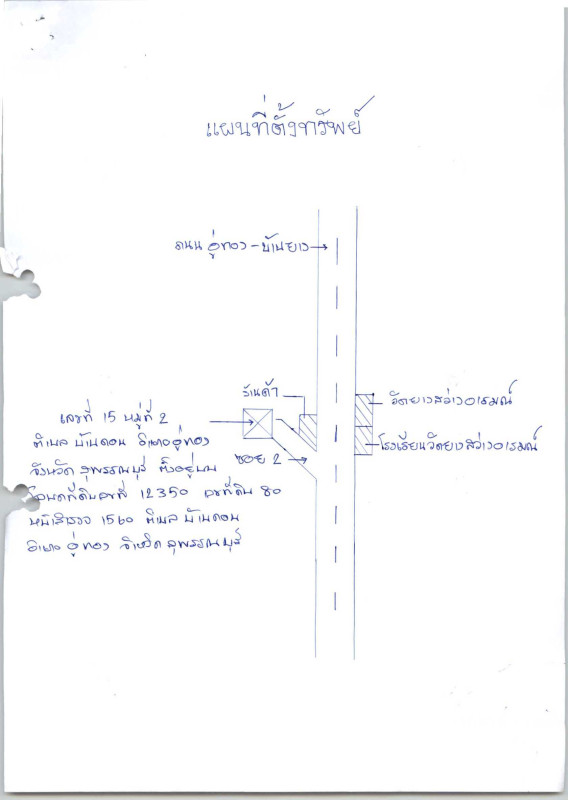 แผนที่ตั้งทรัพย์
ถนน อู่ทอง - บ้านยาง
ร้านค้า
วัดยางสว่างอารมณ์
เลขที่ 15 หมู่ที่ 2
ตำบล บ้านดอน อำเภออู่ทอง
โรงเรียนวัดยางสว่างอารมณ์
ซอย 2
จังหวัด สุพรรณบุรี ตั้งอยู่บน
โฉนดที่ดินเลขที่ 12350 เลขที่ดิน 80
หน้าสำรวจ 1560 ตำบล บ้านดอน
อำเภอ อู่ทอง จังหวัด สุพรรณบุรี